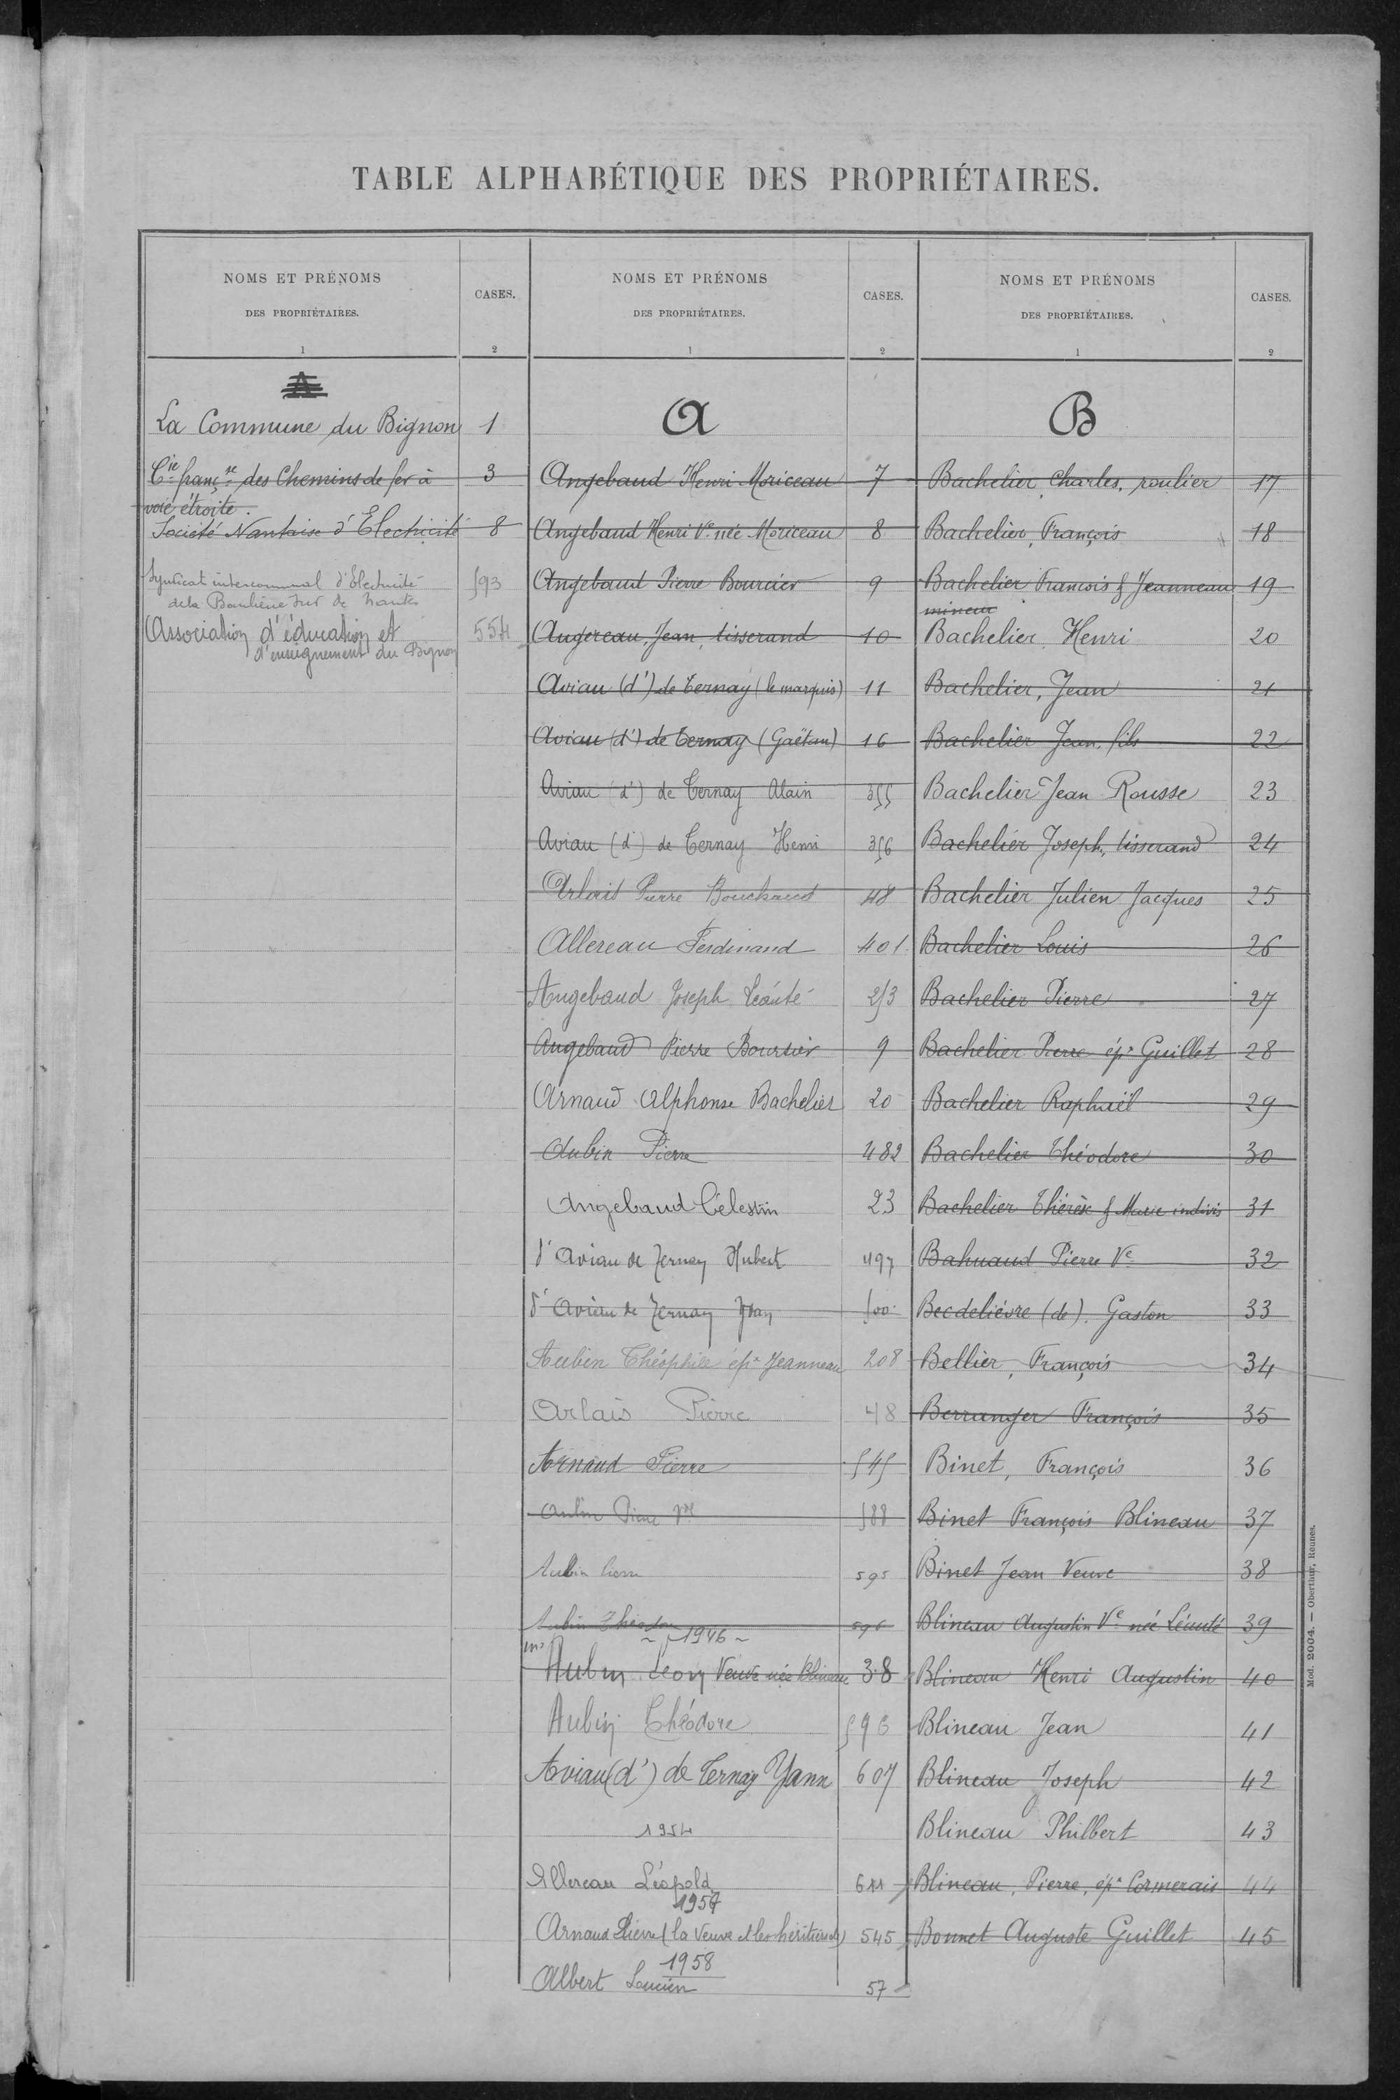 TABLE ALPHABÉTIQUE DES PROPRIÉTAIRES.
NOMS ET PRÉNOMS
DES PROPRIÉTAIRES.
1
CASES.
2
A
La Commune du Bignon 1
Cie françse des Chemins de fer à 3
voie étroite.
Société Nantaise d'Electricité 8
Syndicat intercommunal d'Electricité 593
de la Banlieue Sud de Nantes
Association d'éducation et 554
d'enseignement du Bignon
NOMS ET PRÉNOMS
DES PROPRIÉTAIRES.
1
CASES.
2
A
Angebaud Henri Moriceau 7
Angebaud Henri Ve née Moriceau 8
Angebaud Pierre Bourcier 9
Augereau, Jean, tisserand 10
Aviau (d') de Ternay (le marquis) 11
Aviau (d') de Ternay (Gaëtan) 16
Aviau (d') de Ternay Alain 355
Aviau (d') de Ternay Henri 356
Arlais Pierre Bouchaud 48
Allereau Ferdinand 401
Angebaud Joseph Léauté 253
Angebaud Pierre Boursier 9
Arnaud Alphonse Bachelier 20
Aubin Pierre 482
Angebaud Célestin 23
d'Aviau de Ternay Hubert 497
d'Aviau de Ternay 500
Aubin Théophile épx Jeanneau 208
Arlais Pierre 48
Arnaud Pierre 545
Aubin Pierre 588
Aubin 595
Aubin Théodore 596
~ 1946 ~
Aubin Léon Veuve née Blineau 38
Aubin Théodore 593
Aviau (d') de Ternay Yann 607
1954
Allereau Léopold 611
1957
Arnaud Pierre (la Veuve et les héritiers de) 545
1958
Albert Lucien 57
NOMS ET PRÉNOMS
DES PROPRIÉTAIRES.
1
CASES.
2
B
Bachelier, Charles, roulier 17
Bachelier, François 18
Bachelier François & Jeanneau 19
mineur
Bachelier, Henri 20
Bachelier, Jean 21
Bachelier Jean, fils 22
Bachelier Jean Rousse 23
Bachelier Joseph, tisserand 24
Bachelier Julien Jacques 25
Bachelier Louis 26
Bachelier Pierre 27
Bachelier Pierre épx Guillet 28
Bachelier Raphaël 29
Bachelier Théodore 30
Bachelier Thérèse & Marie indivis 31
Bahuaud Pierre Ve 32
Becdelièvre (de). Gaston 33
Bellier, François 34
Berranger François 35
Binet, François 36
Binet François Blineau 37
Binet Jean Veuve 38
Blineau Augustin Ve née Léauté 39
Blineau Henri Augustin 40
Blineau Jean 41
Blineau Joseph 42
Blineau Philbert 43
Blineau, Pierre, épx Cormerais 44
Bonnet Auguste Guillet 45
Mod. 2004. — Oberthur, Rennes.